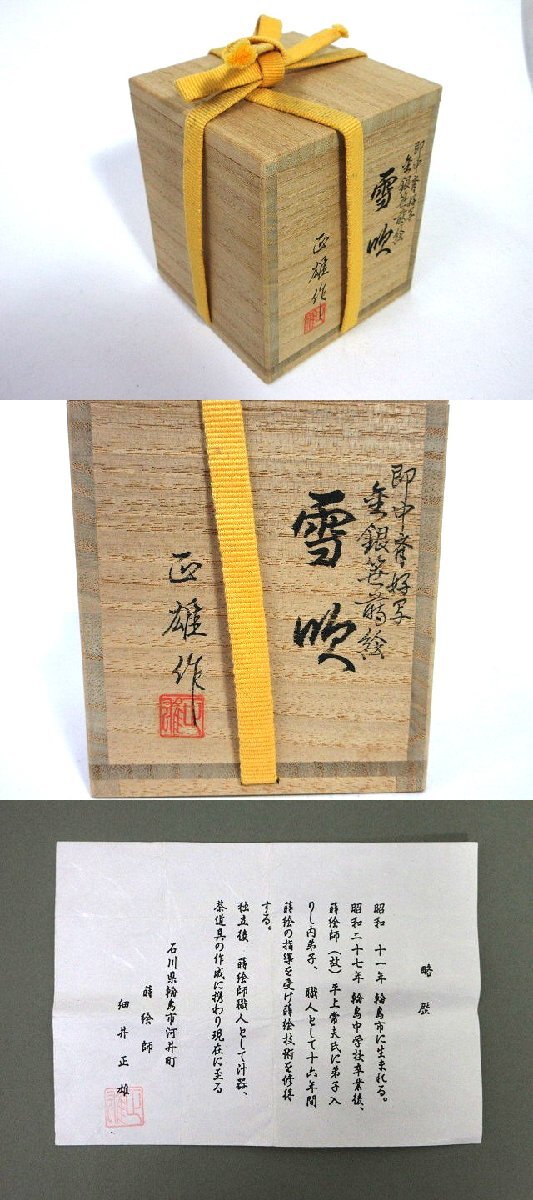 即中斎好写
金銀笹蒔絵
雪吹
正雄作
即中斎好写
金銀笹蒔絵
雪吹
正雄作
略歴
昭和 十一年 輪島市に生まれる。
昭和二十七年 輪島中学校卒業後、
蒔絵師(故)井上常夫氏に弟子入
りし内弟子、職人として十六年間
蒔絵の指導を受け蒔絵技術を修得
する。
独立後 蒔絵師職人として汁器、
茶道具の作成に携わり現在に至る
石川県輪島市河井町
蒔絵師
細井正雄